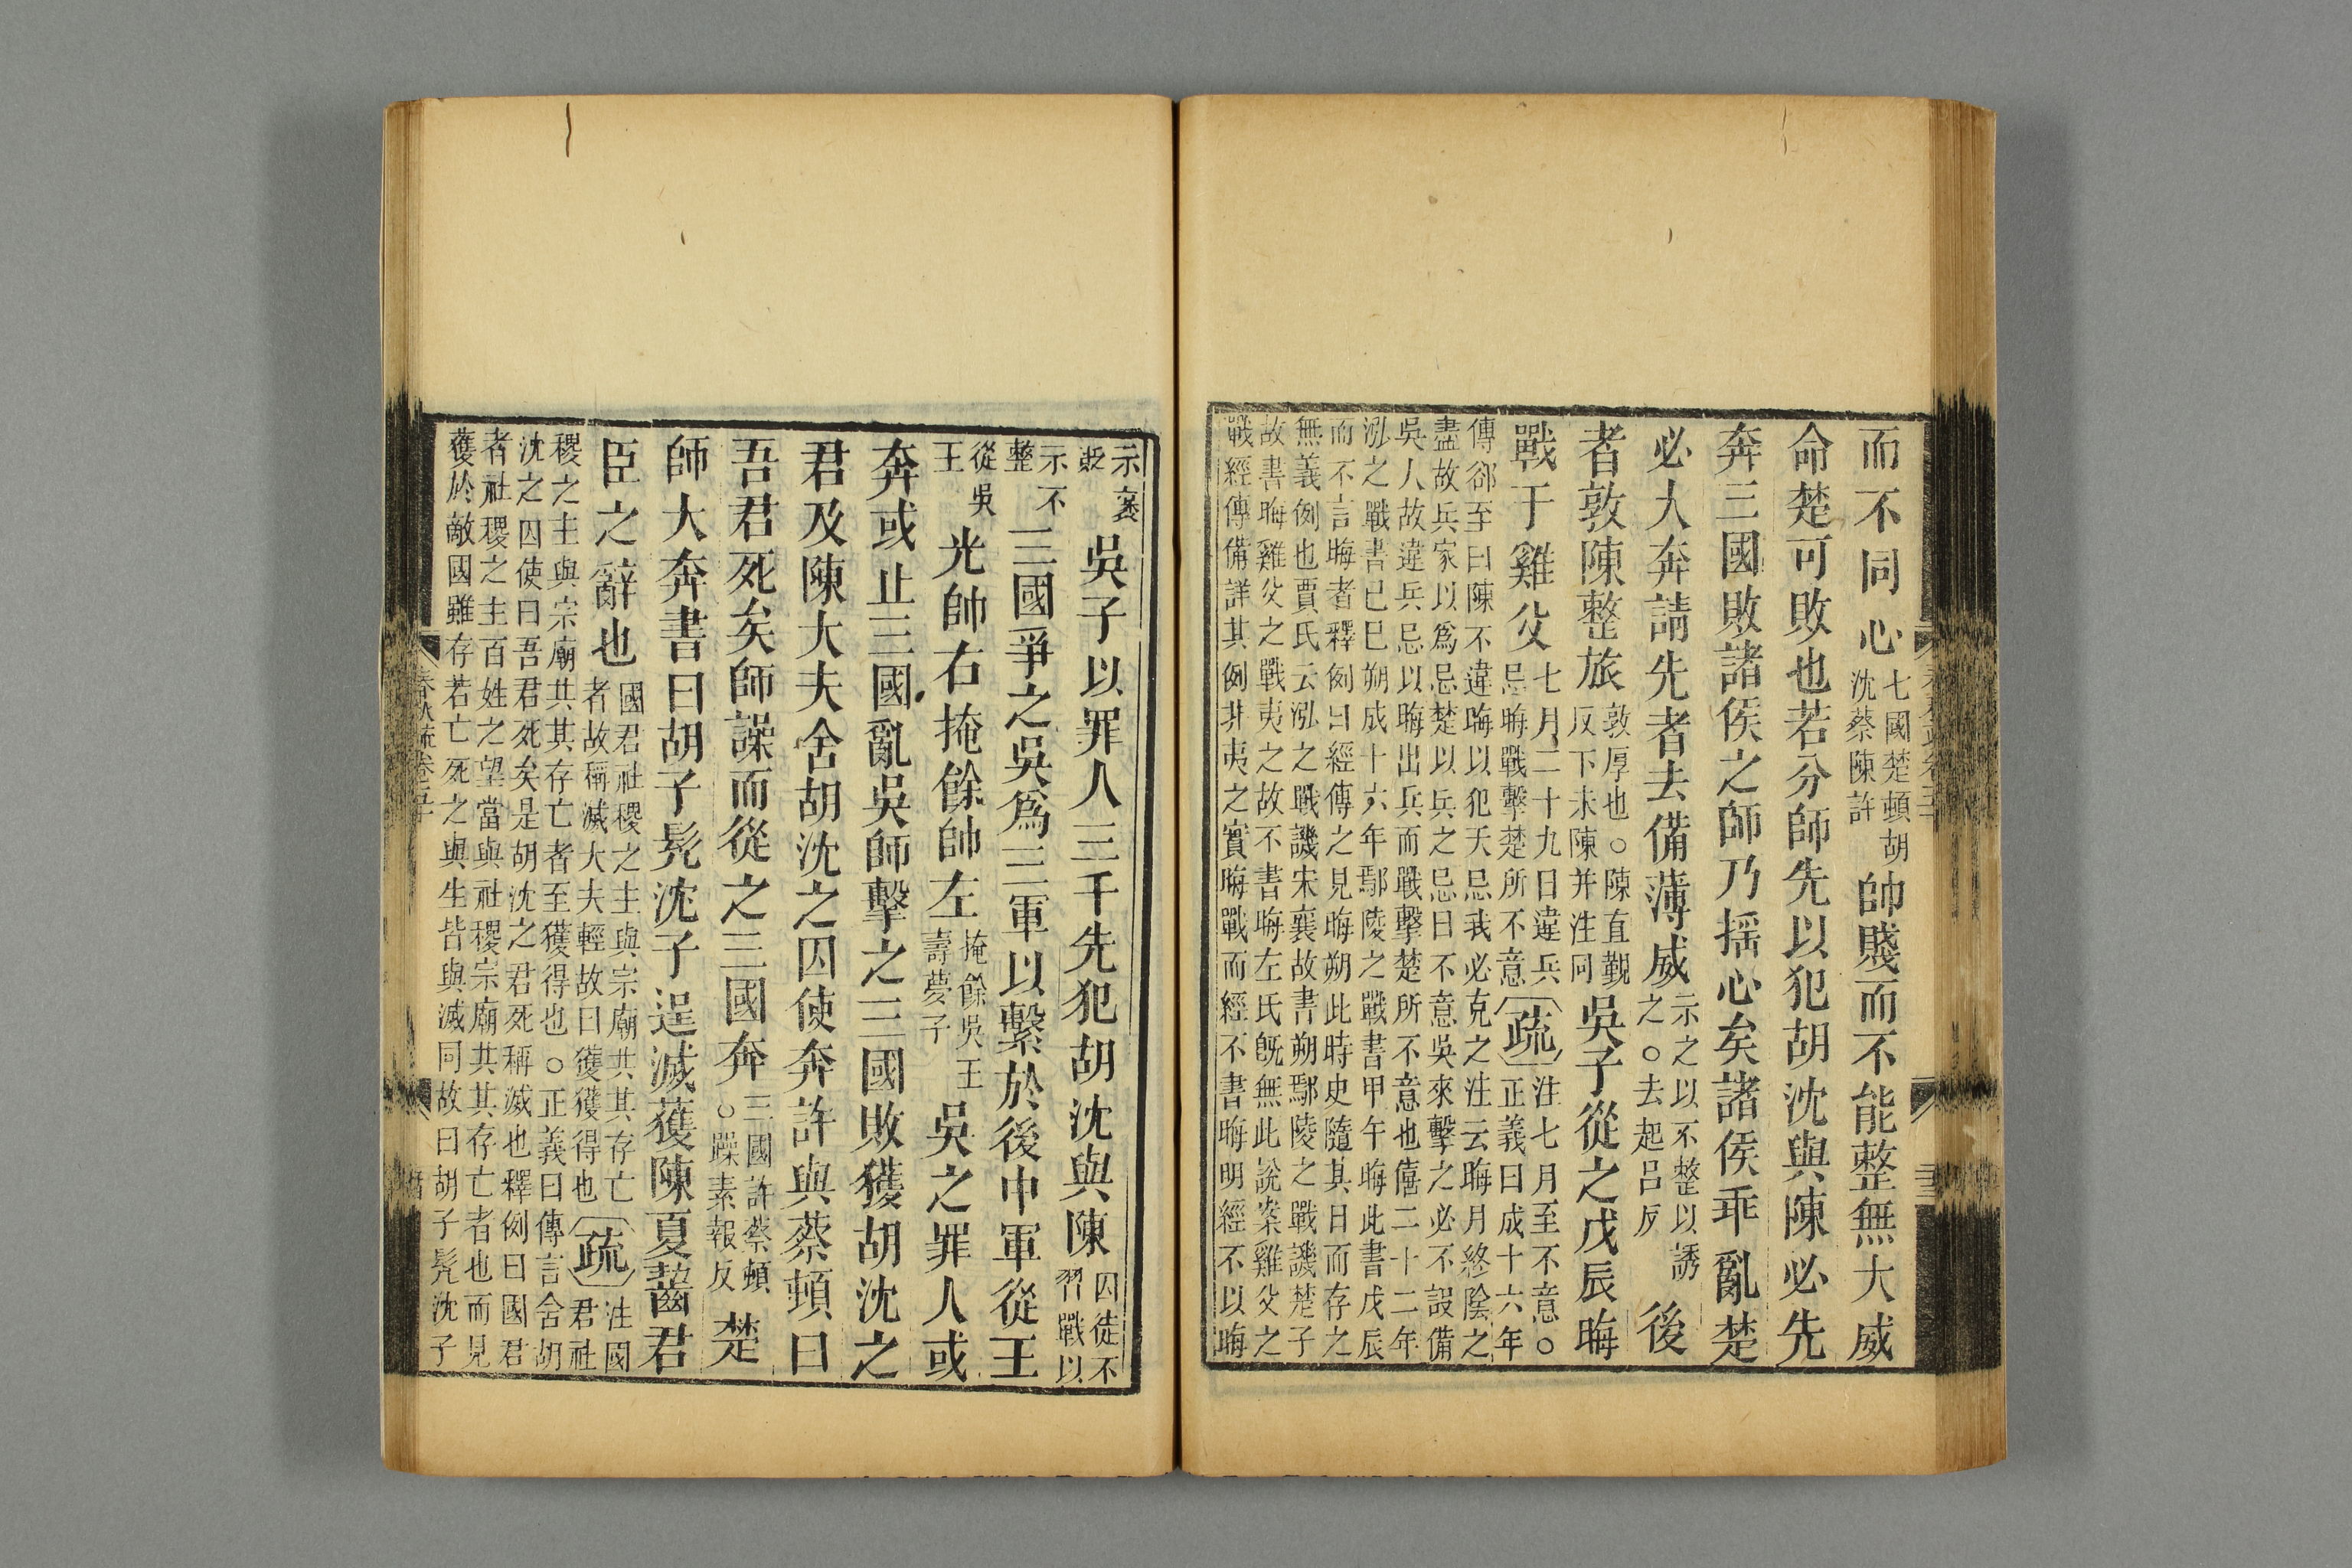 而不同心七國楚頓胡沈蔡陳許帥賤而不能整無大威
命楚可敗也若分師先以犯胡沈與陳必先
奔三國敗諸侯之師乃揺心矣諸侯乖亂楚
必大奔請先者去備薄威示之以不整以誘之○去起呂反後
者敦陳整旅敦厚也○陳直覲反下未陳并注同吳子從之戊辰晦
戰于雞父七月二十九日違兵忌晦戰擊楚所不意疏注七月至不意○正義曰成十六年
傳郤至曰陳不違晦以犯天忌我必克之注云晦月終陰之
盡故兵家以爲忌楚以兵之忌日不意吳來擊之必不設備
吳人故違兵忌以晦出兵而戰擊楚所不意也僖二十二年
泓之戰書已巳朔成十六年鄢陵之戰書甲午晦此書戊辰
而不言晦者釋例曰經傳之見晦朔此時史隨其日而存之
無義例也賈氏云泓之戰譏宋襄故書朔鄢陵之戰譏楚子
故書晦雞父之戰夷之故不書晦左氏旣無此說案雞父之
戰經傳備詳其例非夷之實晦戰而經不書晦明經不以晦
示褒貶吳子以罪人三千先犯胡沈與陳囚徒不習戰以
示不整三國爭之吳爲三軍以繫於後中軍從王
從吳王光帥右掩餘帥左掩餘吳王壽夢子吳之罪人或
奔或止三國亂吳師擊之三國敗獲胡沈之
君及陳大夫舍胡沈之囚使奔許與蔡頓曰
吾君死矣師譟而從之三國奔三國許蔡頓○躁素報反楚
師大奔書曰胡子髡沈子逞滅獲陳夏齧君
臣之辭也國君社稷之主與宗廟共其存亡者故稱滅大夫輕故曰獲獲得也疏注國君社
稷之主與宗廟共其存亡者至獲得也○正義曰傳言舍胡
沈之囚使曰吾君死矣是胡沈之君死稱滅也釋例曰國君
者社稷之主百姓之望當與社稷宗廟共其存亡者也而見
獲於敵國雖存若亡死之與生皆與滅同故曰胡子髡沈子